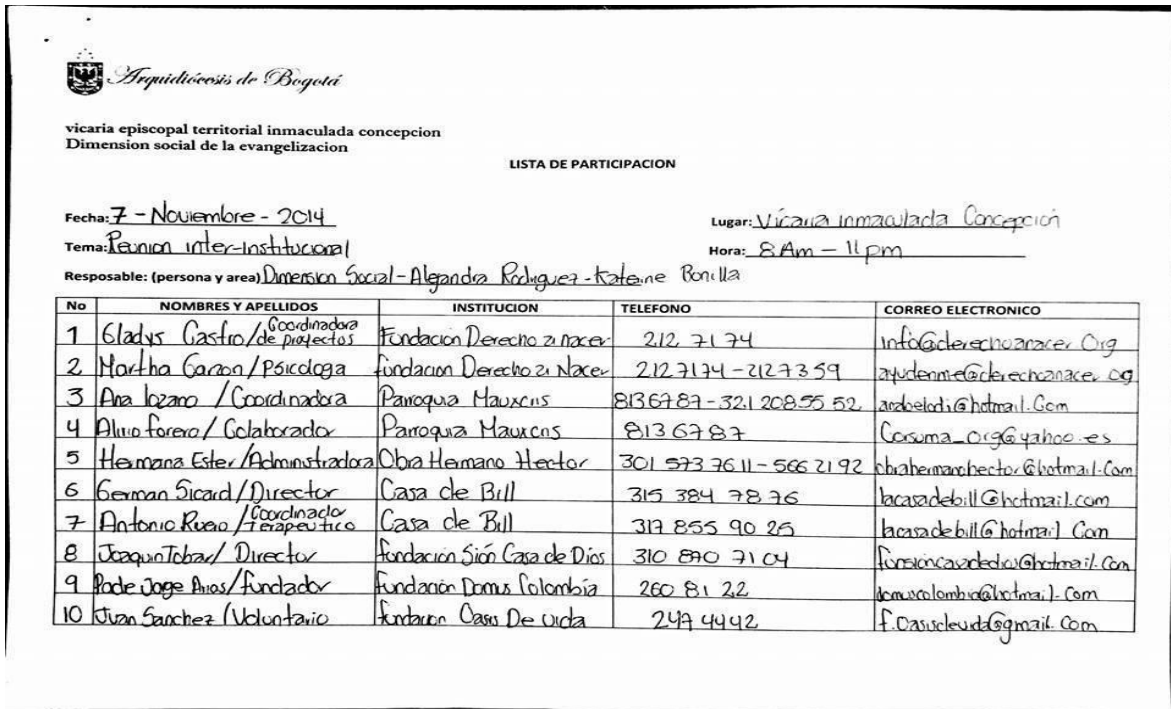 Arquidiócesis de Bogotá
vicaria episcopal territorial inmaculada concepcion
Dimension social de la evangelizacion
LISTA DE PARTICIPACION
Fecha: 7 - Noviembre - 2014 Lugar: Vicaria Inmaculada Concepción
Tema: Reunion inter-institucional Hora: 8 Am - 11 pm
Resposable: (persona y area) Dimension Social - Alejandra Rodriguez - Katerine Bonilla
No NOMBRES Y APELLIDOS INSTITUCION TELEFONO CORREO ELECTRONICO
1 Gladys Castro / Coordinadora de proyectos Fundacion Derecho a nacer 212 71 74 info@derechoanacer.Org
2 Martha Garzon / Psicologa fundacion Derecho a Nacer 2127174 - 2127359 ayudenme@derechoanacer.org
3 Ana lozano / Coordinadora Parroquia 8136787 - 321 20855 52 @hotmail.Com
4 Alirio forero / Colaborador Parroquia 8136787 Corsuma_org@yahoo.es
5 Hermana Ester / Administradora Obra Hermano Hector 301 573 7611 - 566 2192 obrahermanohector@hotmail.Com
6 German Sicard / Director Casa de Bill 315 384 78 76 lacasadebill@hotmail.com
7 Antonio / Coordinador Terapeutico Casa de Bill 317 855 90 25 lacasadebill@hotmail.Com
8 Joaquin Tobar / Director fundación Sión Casa de Dios 310 870 71 04 @hotmail.Com
9 Padre Jorge / fundador fundación Domus Colombia 260 81 22 domuscolombia@hotmail.Com
10 Juan Sanchez / Voluntario fundacion Oasis De vida 247 4442 f.oasisdevida@gmail.Com